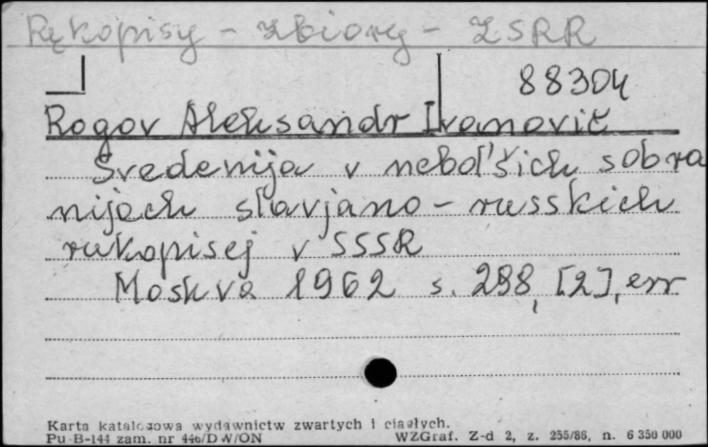 Rękopisy - zbiory - ZSRR
88304
Rogov Aleksandr Ivanovič
Svedenija v nebol'šich sobra
nijach slavjano-russkich
rukopisej v SSSR
Moskva 1962 s. 288, [2], err
Karta katalogowa wydawnictw zwartych i ciągłych.
Pu-B-144 zam. nr 446/DW/ON WZGraf. Z-d 2, z. 255/86, n. 6 350 000